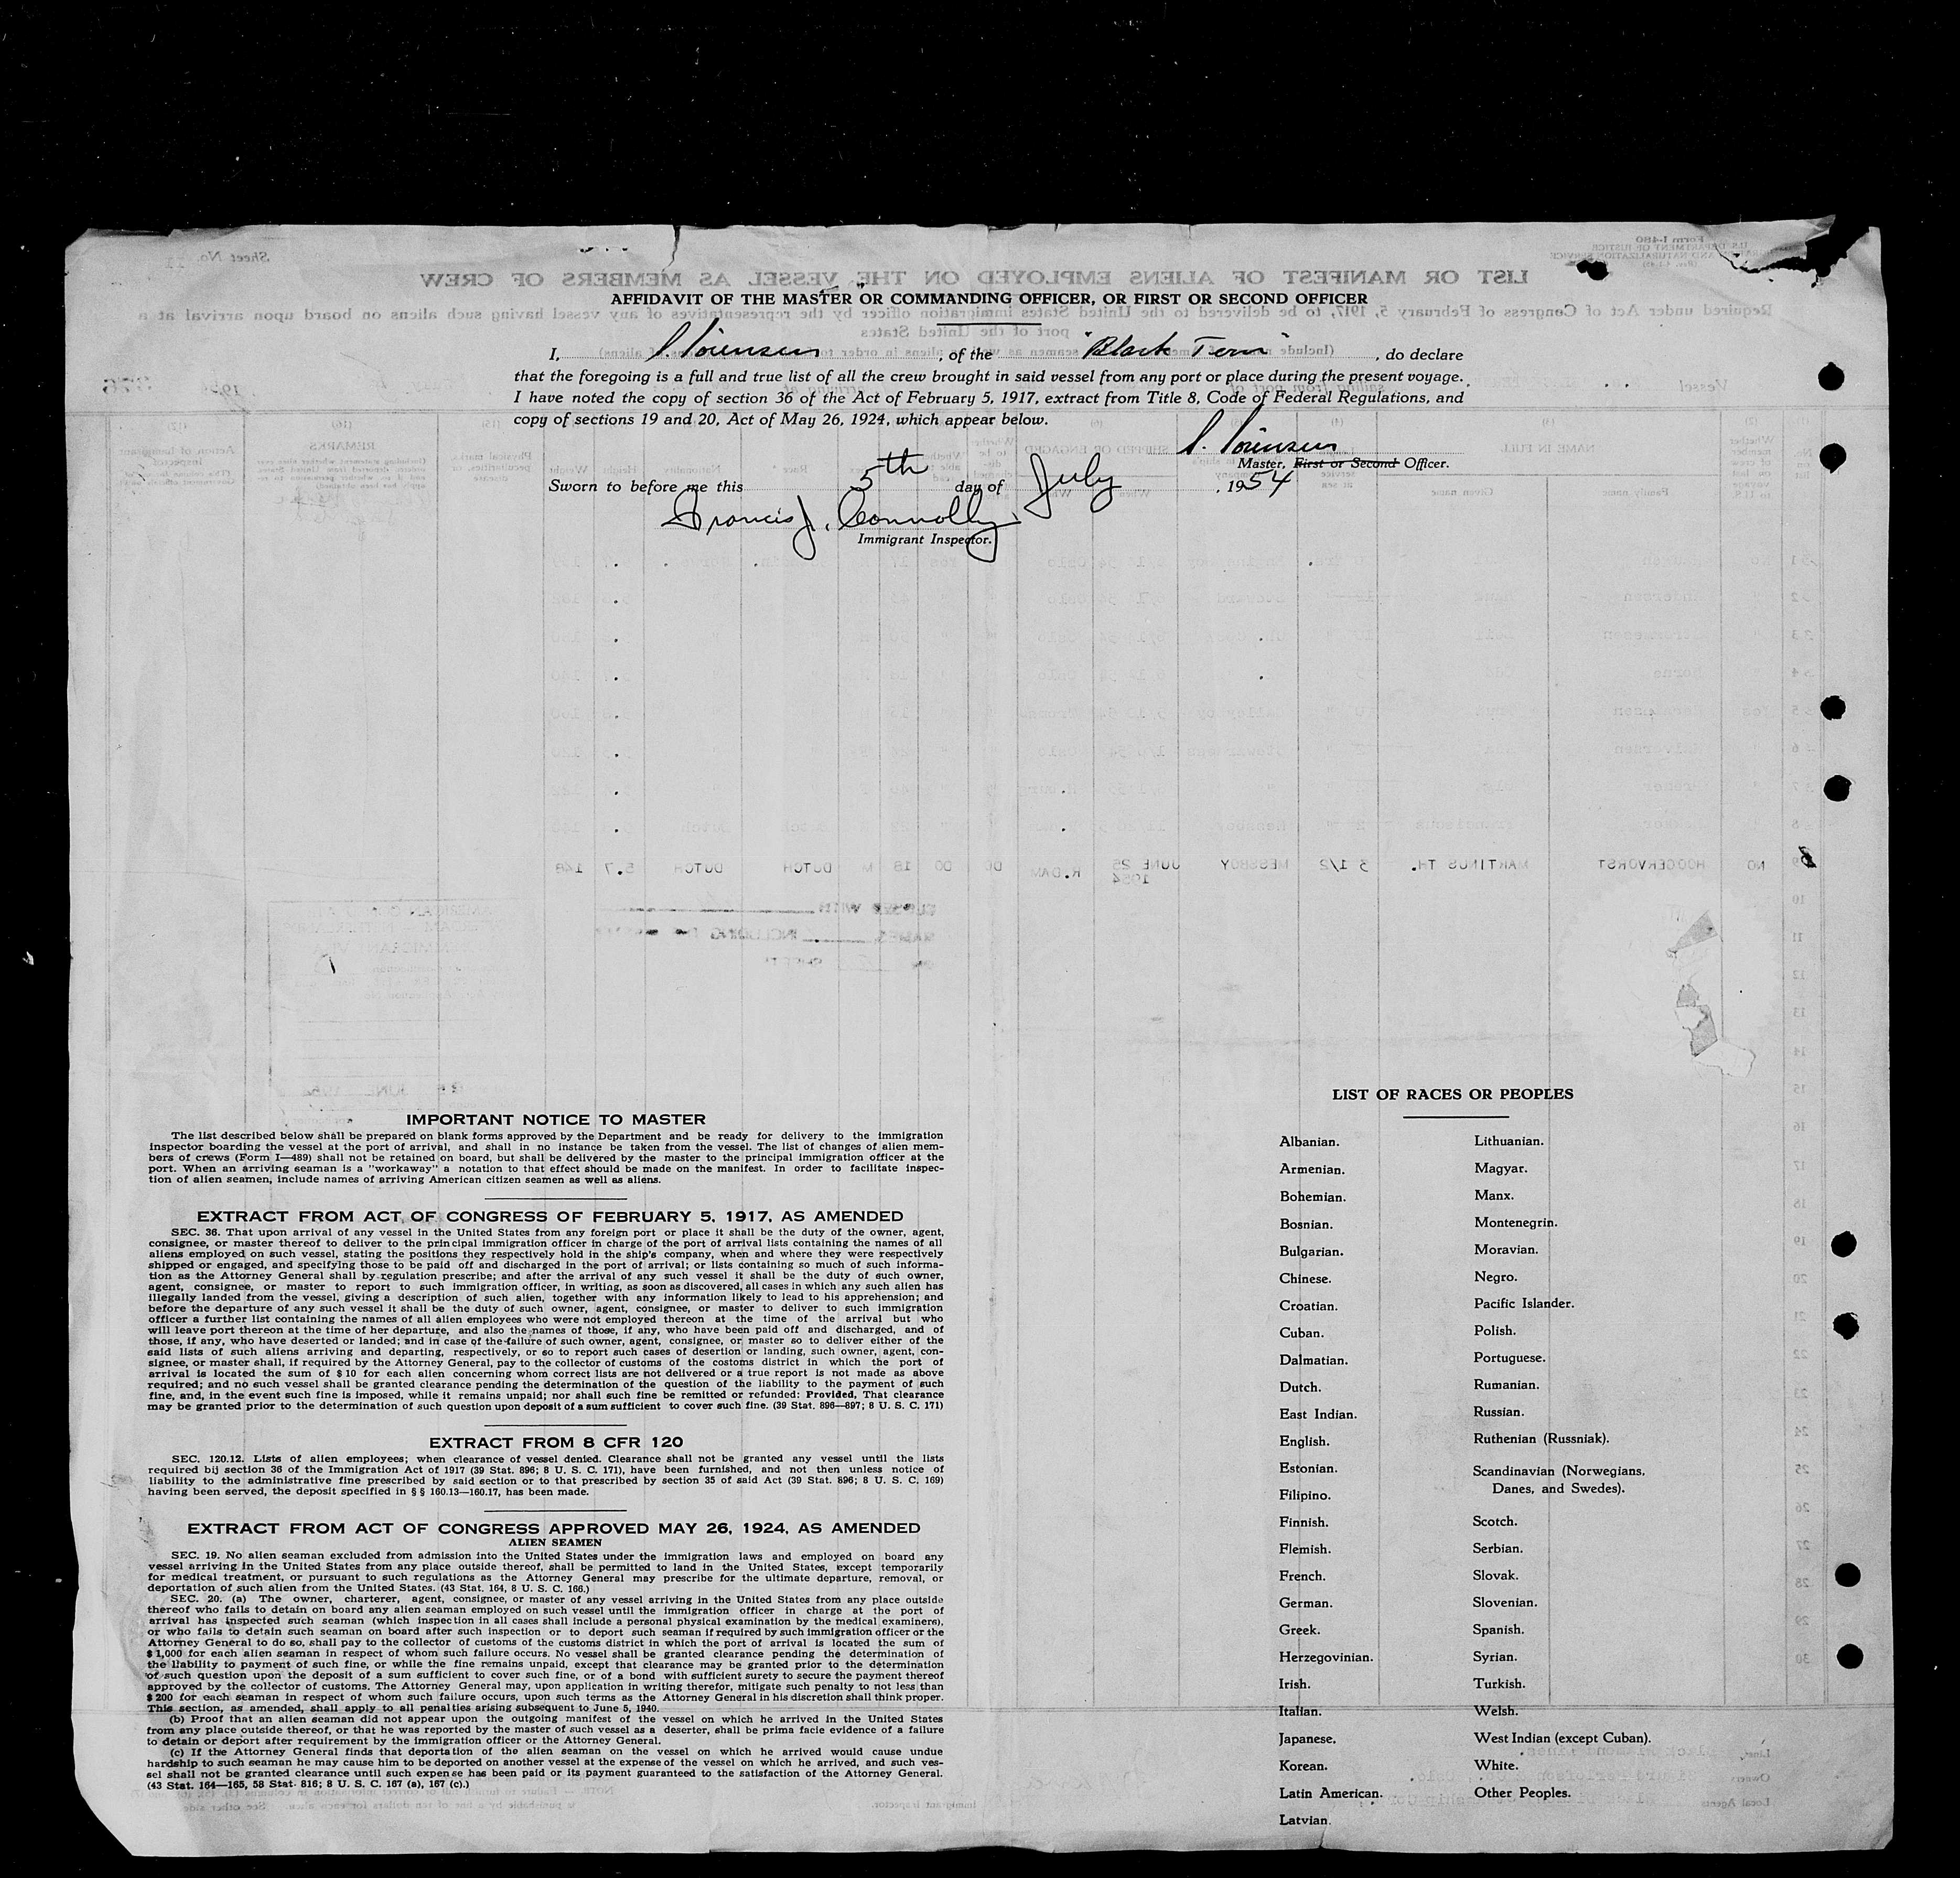 AFFIDAVIT OF THE MASTER OR COMMANDING OFFICER, OR FIRST OR SECOND OFFICER
I, S. Sörensen, of the "Black Tern", do declare
that the foregoing is a full and true list of all the crew brought in said vessel from any port or place during the present voyage.
I have noted the copy of section 36 of the Act of February 5, 1917, extract from Title 8, Code of Federal Regulations, and
copy of sections 19 and 20, Act of May 26, 1924, which appear below.
S. Sörensen
Master, First or Second Officer.
Sworn to before me this 5th day of July, 1954
Francis J. Connolly
Immigrant Inspector.
IMPORTANT NOTICE TO MASTER
The list described below shall be prepared on blank forms approved by the Department and be ready for delivery to the immigration
inspector boarding the vessel at the port of arrival, and shall in no instance be taken from the vessel. The list of changes of alien mem-
bers of crews (Form I—489) shall not be retained on board, but shall be delivered by the master to the principal immigration officer at the
port. When an arriving seaman is a "workaway" a notation to that effect should be made on the manifest. In order to facilitate inspec-
tion of alien seamen, include names of arriving American citizen seamen as well as aliens.
EXTRACT FROM ACT OF CONGRESS OF FEBRUARY 5, 1917, AS AMENDED
SEC. 36. That upon arrival of any vessel in the United States from any foreign port or place it shall be the duty of the owner, agent,
consignee, or master thereof to deliver to the principal immigration officer in charge of the port of arrival lists containing the names of all
aliens employed on such vessel, stating the positions they respectively hold in the ship's company, when and where they were respectively
shipped or engaged, and specifying those to be paid off and discharged in the port of arrival; or lists containing so much of such informa-
tion as the Attorney General shall by regulation prescribe; and after the arrival of any such vessel it shall be the duty of such owner,
agent, consignee, or master to report to such immigration officer, in writing, as soon as discovered, all cases in which any such alien has
illegally landed from the vessel, giving a description of such alien, together with any information likely to lead to his apprehension; and
before the departure of any such vessel it shall be the duty of such owner, agent, consignee, or master to deliver to such immigration
officer a further list containing the names of all alien employees who were not employed thereon at the time of the arrival but who
will leave port thereon at the time of her departure, and also the names of those, if any, who have been paid off and discharged, and of
those, if any, who have deserted or landed; and in case of the failure of such owner, agent, consignee, or master so to deliver either of the
said lists of such aliens arriving and departing, respectively, or so to report such cases of desertion or landing, such owner, agent, con-
signee, or master shall, if required by the Attorney General, pay to the collector of customs of the costoms district in which the port of
arrival is located the sum of $10 for each alien concerning whom correct lists are not delivered or a true report is not made as above
required; and no such vessel shall be granted clearance pending the determination of the question of the liability to the payment of such
fine, and, in the event such fine is imposed, while it remains unpaid; nor shall such fine be remitted or refunded: Provided, That clearance
may be granted prior to the determination of such question upon deposit of a sum sufficient to cover such fine. (39 Stat. 896—897; 8 U. S. C. 171)
EXTRACT FROM 8 CFR 120
SEC. 120.12. Lists of alien employees; when clearance of vessel denied. Clearance shall not be granted any vessel until the lists
required bij section 36 of the Immigration Act of 1917 (39 Stat. 896; 8 U. S. C. 171), have been furnished, and not then unless notice of
liability to the administrative fine prescribed by said section or to that prescribed by section 35 of said Act (39 Stat. 896; 8 U. S. C. 169)
having been served, the deposit specified in § § 160.13—160.17, has been made.
EXTRACT FROM ACT OF CONGRESS APPROVED MAY 26, 1924, AS AMENDED
ALIEN SEAMEN
SEC. 19. No alien seaman excluded from admission into the United States under the immigration laws and employed on board any
vessel arriving in the United States from any place outside thereof, shall be permitted to land in the United States, except temporarily
for medical treatment, or pursuant to such regulations as the Attorney General may prescribe for the ultimate departure, removal, or
deportation of such alien from the United States. (43 Stat. 164, 8 U. S. C. 166.)
SEC. 20. (a) The owner, charterer, agent, consignee, or master of any vessel arriving in the United States from any place outside
thereof who fails to detain on board any alien seaman employed on such vessel until the immigration officer in charge at the port of
arrival has inspected such seaman (which inspection in all cases shall include a personal physical examination by the medical examiners),
or who fails to detain such seaman on board after such inspection or to deport such seaman if required by such immigration officer or the
Attorney General to do so, shall pay to the collector of customs of the customs district in which the port of arrival is located the sum of
$1,000 for each alien seaman in respect of whom such failure occurs. No vessel shall be granted clearance pending the determination of
the liability to payment of such fine, or while the fine remains unpaid, except that clearance may be granted prior to the determination
of such question upon the deposit of a sum sufficient to cover such fine, or of a bond with sufficient surety to secure the payment thereof
approved by the collector of customs. The Attorney General may, upon application in writing therefor, mitigate such penalty to not less than
$200 for each seaman in respect of whom such failure occurs, upon such terms as the Attorney General in his discretion shall think proper.
This section, as amended, shall apply to all penalties arising subsequent to June 5, 1940.
(b) Proof that an alien seaman did not appear upon the outgoing manifest of the vessel on which he arrived in the United States
from any place outside thereof, or that he was reported by the master of such vessel as a deserter, shall be prima facie evidence of a failure
to detain or deport after requirement by the immigration officer or the Attorney General.
(c) If the Attorney General finds that deportation of the alien seaman on the vessel on which he arrived would cause undue
hardship to such seaman he may cause him to be deported on another vessel at the expense of the vessel on which he arrived, and such ves-
sel shall not be granted clearance until such expense has been paid or its payment guaranteed to the satisfaction of the Attorney General.
(43 Stat. 164—165, 58 Stat. 816; 8 U. S. C. 167 (a), 167 (c).)
LIST OF RACES OR PEOPLES
Albanian.
Armenian.
Bohemian.
Bosnian.
Bulgarian.
Chinese.
Croatian.
Cuban.
Dalmatian.
Dutch.
East Indian.
English.
Estonian.
Filipino.
Finnish.
Flemish.
French.
German.
Greek.
Herzegovinian.
Irish.
Italian.
Japanese.
Korean.
Latin American.
Latvian.
Lithuanian.
Magyar.
Manx.
Montenegrin.
Moravian.
Negro.
Pacific Islander.
Polish.
Portuguese.
Rumanian.
Russian.
Ruthenian (Russniak).
Scandinavian (Norwegians,
Danes, and Swedes).
Scotch.
Serbian.
Slovak.
Slovenian.
Spanish.
Syrian.
Turkish.
Welsh.
West Indian (except Cuban).
White.
Other Peoples.